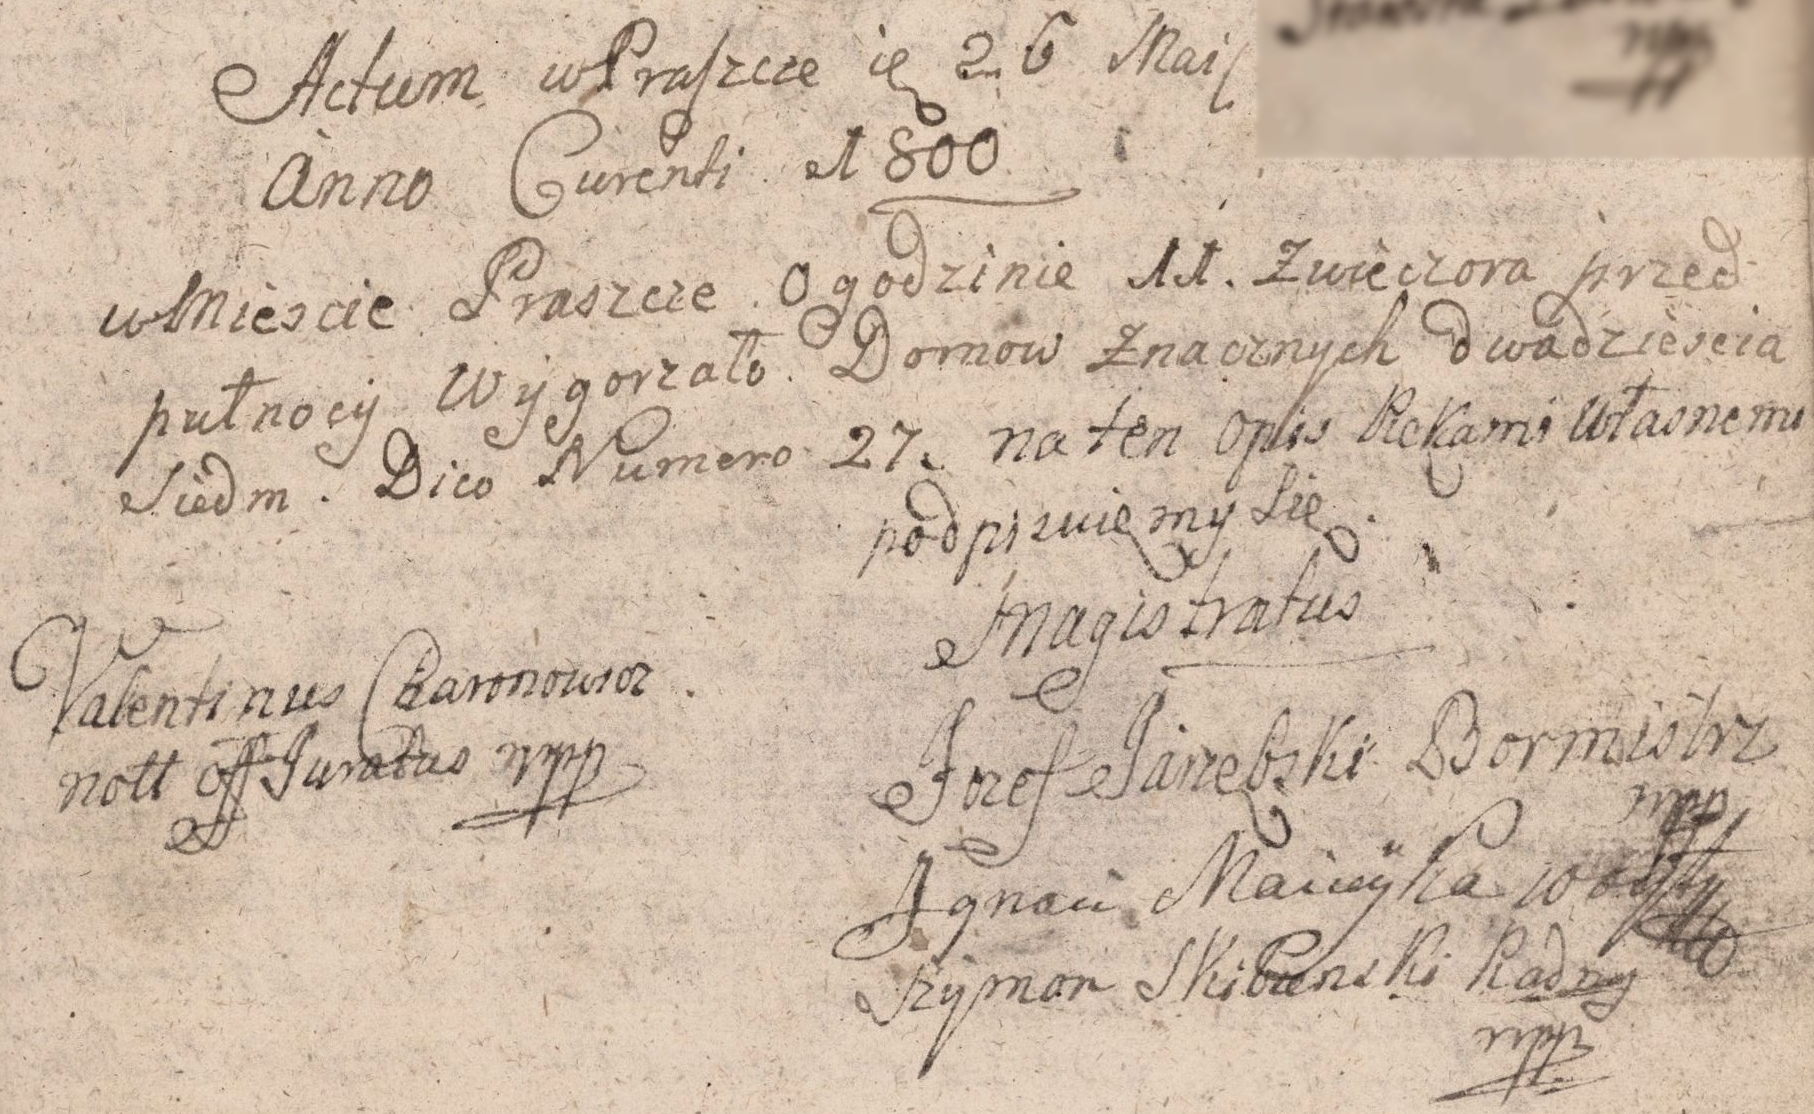 Actum w Praszcze ię 26 Maij
Anno Curenti 1800
w Miescie Praszcze o godzinie 11. z wieczora przed
pułnocÿ Wÿgorzało Domow Znacznych dwadziescia
Siedm. Dico Numero 27. na ten Opis Rękami własnemi
podpisuiemy Się.
Magistratus
Valentinus
nott off Juratus mpp
Jozef Jarzębski Bormistrz
mpp
Ignaci Maicÿka
Szÿmon Radny
mpp